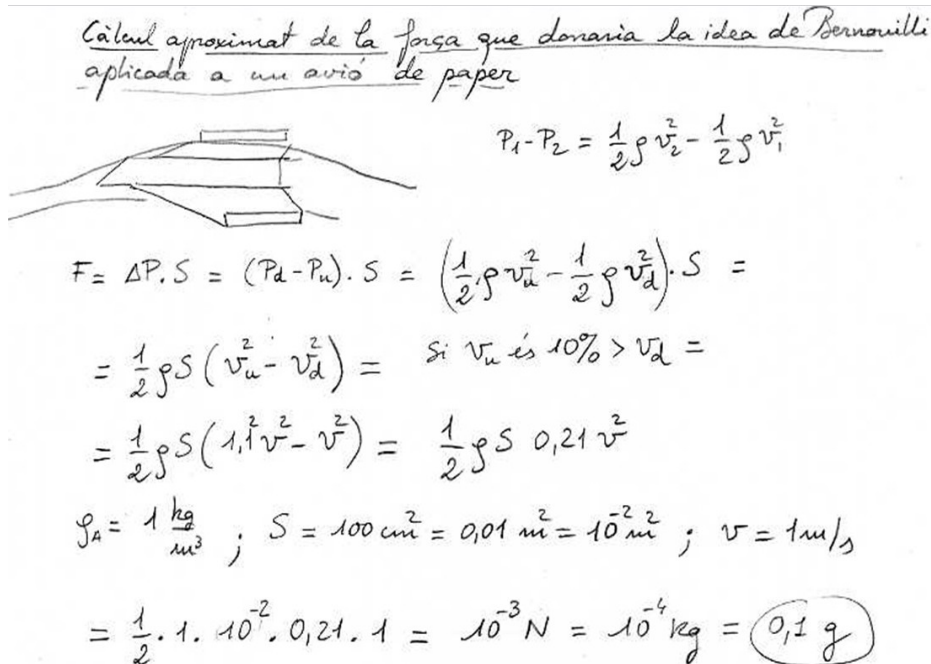 Càlcul aproximat de la força que donaria la idea de Bernouilli
aplicada a un avió de paper
P₁-P₂ = 1/2 ρ v₂² - 1/2 ρ v₁²
F = ΔP.S = (Pd-Pu).S = (1/2.ρ vu² - 1/2 ρ vd²).S =
= 1/2 ρS (vu² - vd²) = si vu és 10% > vd =
= 1/2 ρS (1,1² v² - v²) = 1/2 ρ S 0,21 v²
ρA = 1 kg/m³ ; S = 100 cm² = 0,01 m² = 10⁻² m² ; v = 1 m/s
= 1/2 . 1. 10⁻². 0,21. 1 = 10⁻³ N = 10⁻⁴ kg = 0,1 g